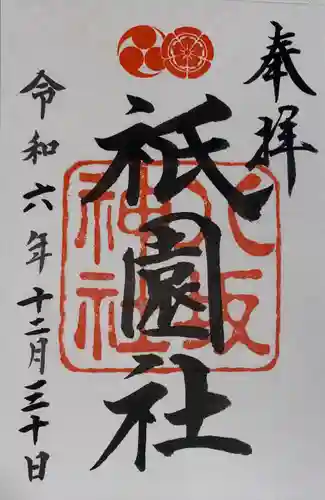 奉拝
八坂
神社
祇園社
令和六年十二月三十日